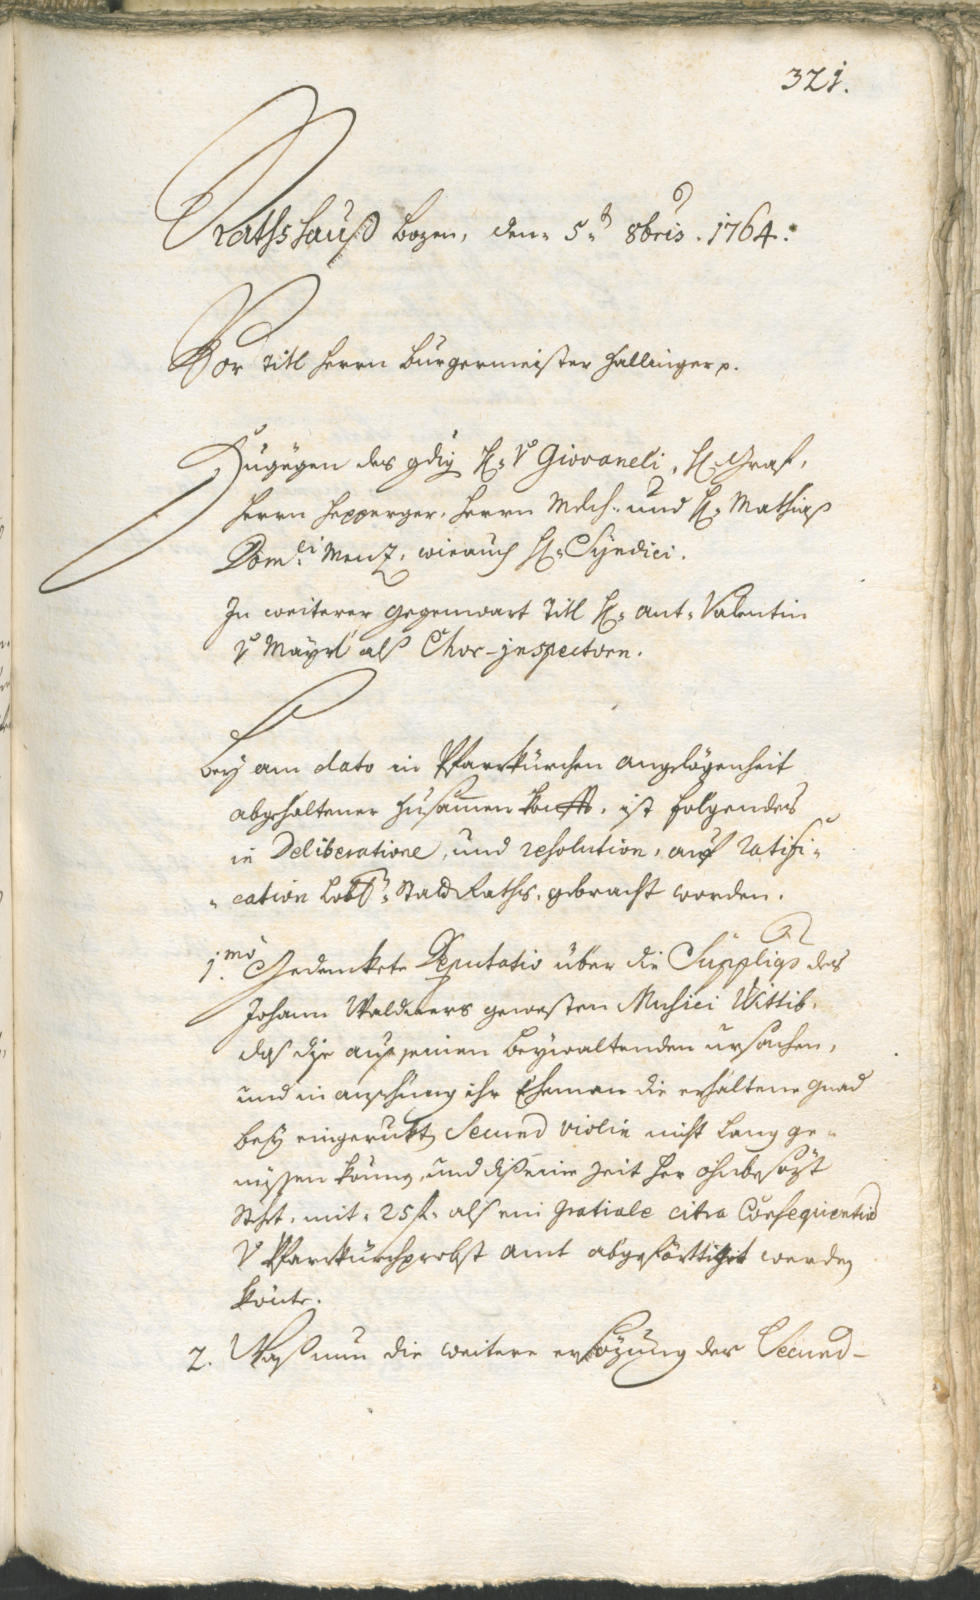 321.
Rathshauß Bozen, den 5.t 8bris. 1764.
Vor Titl Herrn Burgermeister Hallinger p.
Zugegen des gdig H: v Giovaneli, H: Graf,
Herrn Hepperger, Herrn Melch: und H: Mathias
Dom:ci Menz, wie auch H: Syndici.
In weiterer gegenwart Titl H: Ant: Valentin
v Mayrl als Chor-inspectorn.
Bey am dato in Pfarrkürchen angelögenheit
abgehaltener Zusamenkonfft, ist folgendes
in Deliberatione, und resolution, auf ratifi-
cation Lobl: Stadt Raths, gebracht worden.
1.mo Gedenckte Deputatio über die Suppliqs des
Johann Waldners gewesten Musici Wittib,
das dise aus jenen beywaltenden ursachen,
und in ansehung ihr Eheman die erhaltene gnad
bey eingerukt Secund violin nicht lang ge-
nüssen könen, und diß eine zeit her ohnbesözt
Steht, mit 25 f. als ein gratiale citra Consequentia
v Pfarrkürchprobst Amt abgeförttiget werden
könte.
2. Was nun die weitere ersözung der Secund-